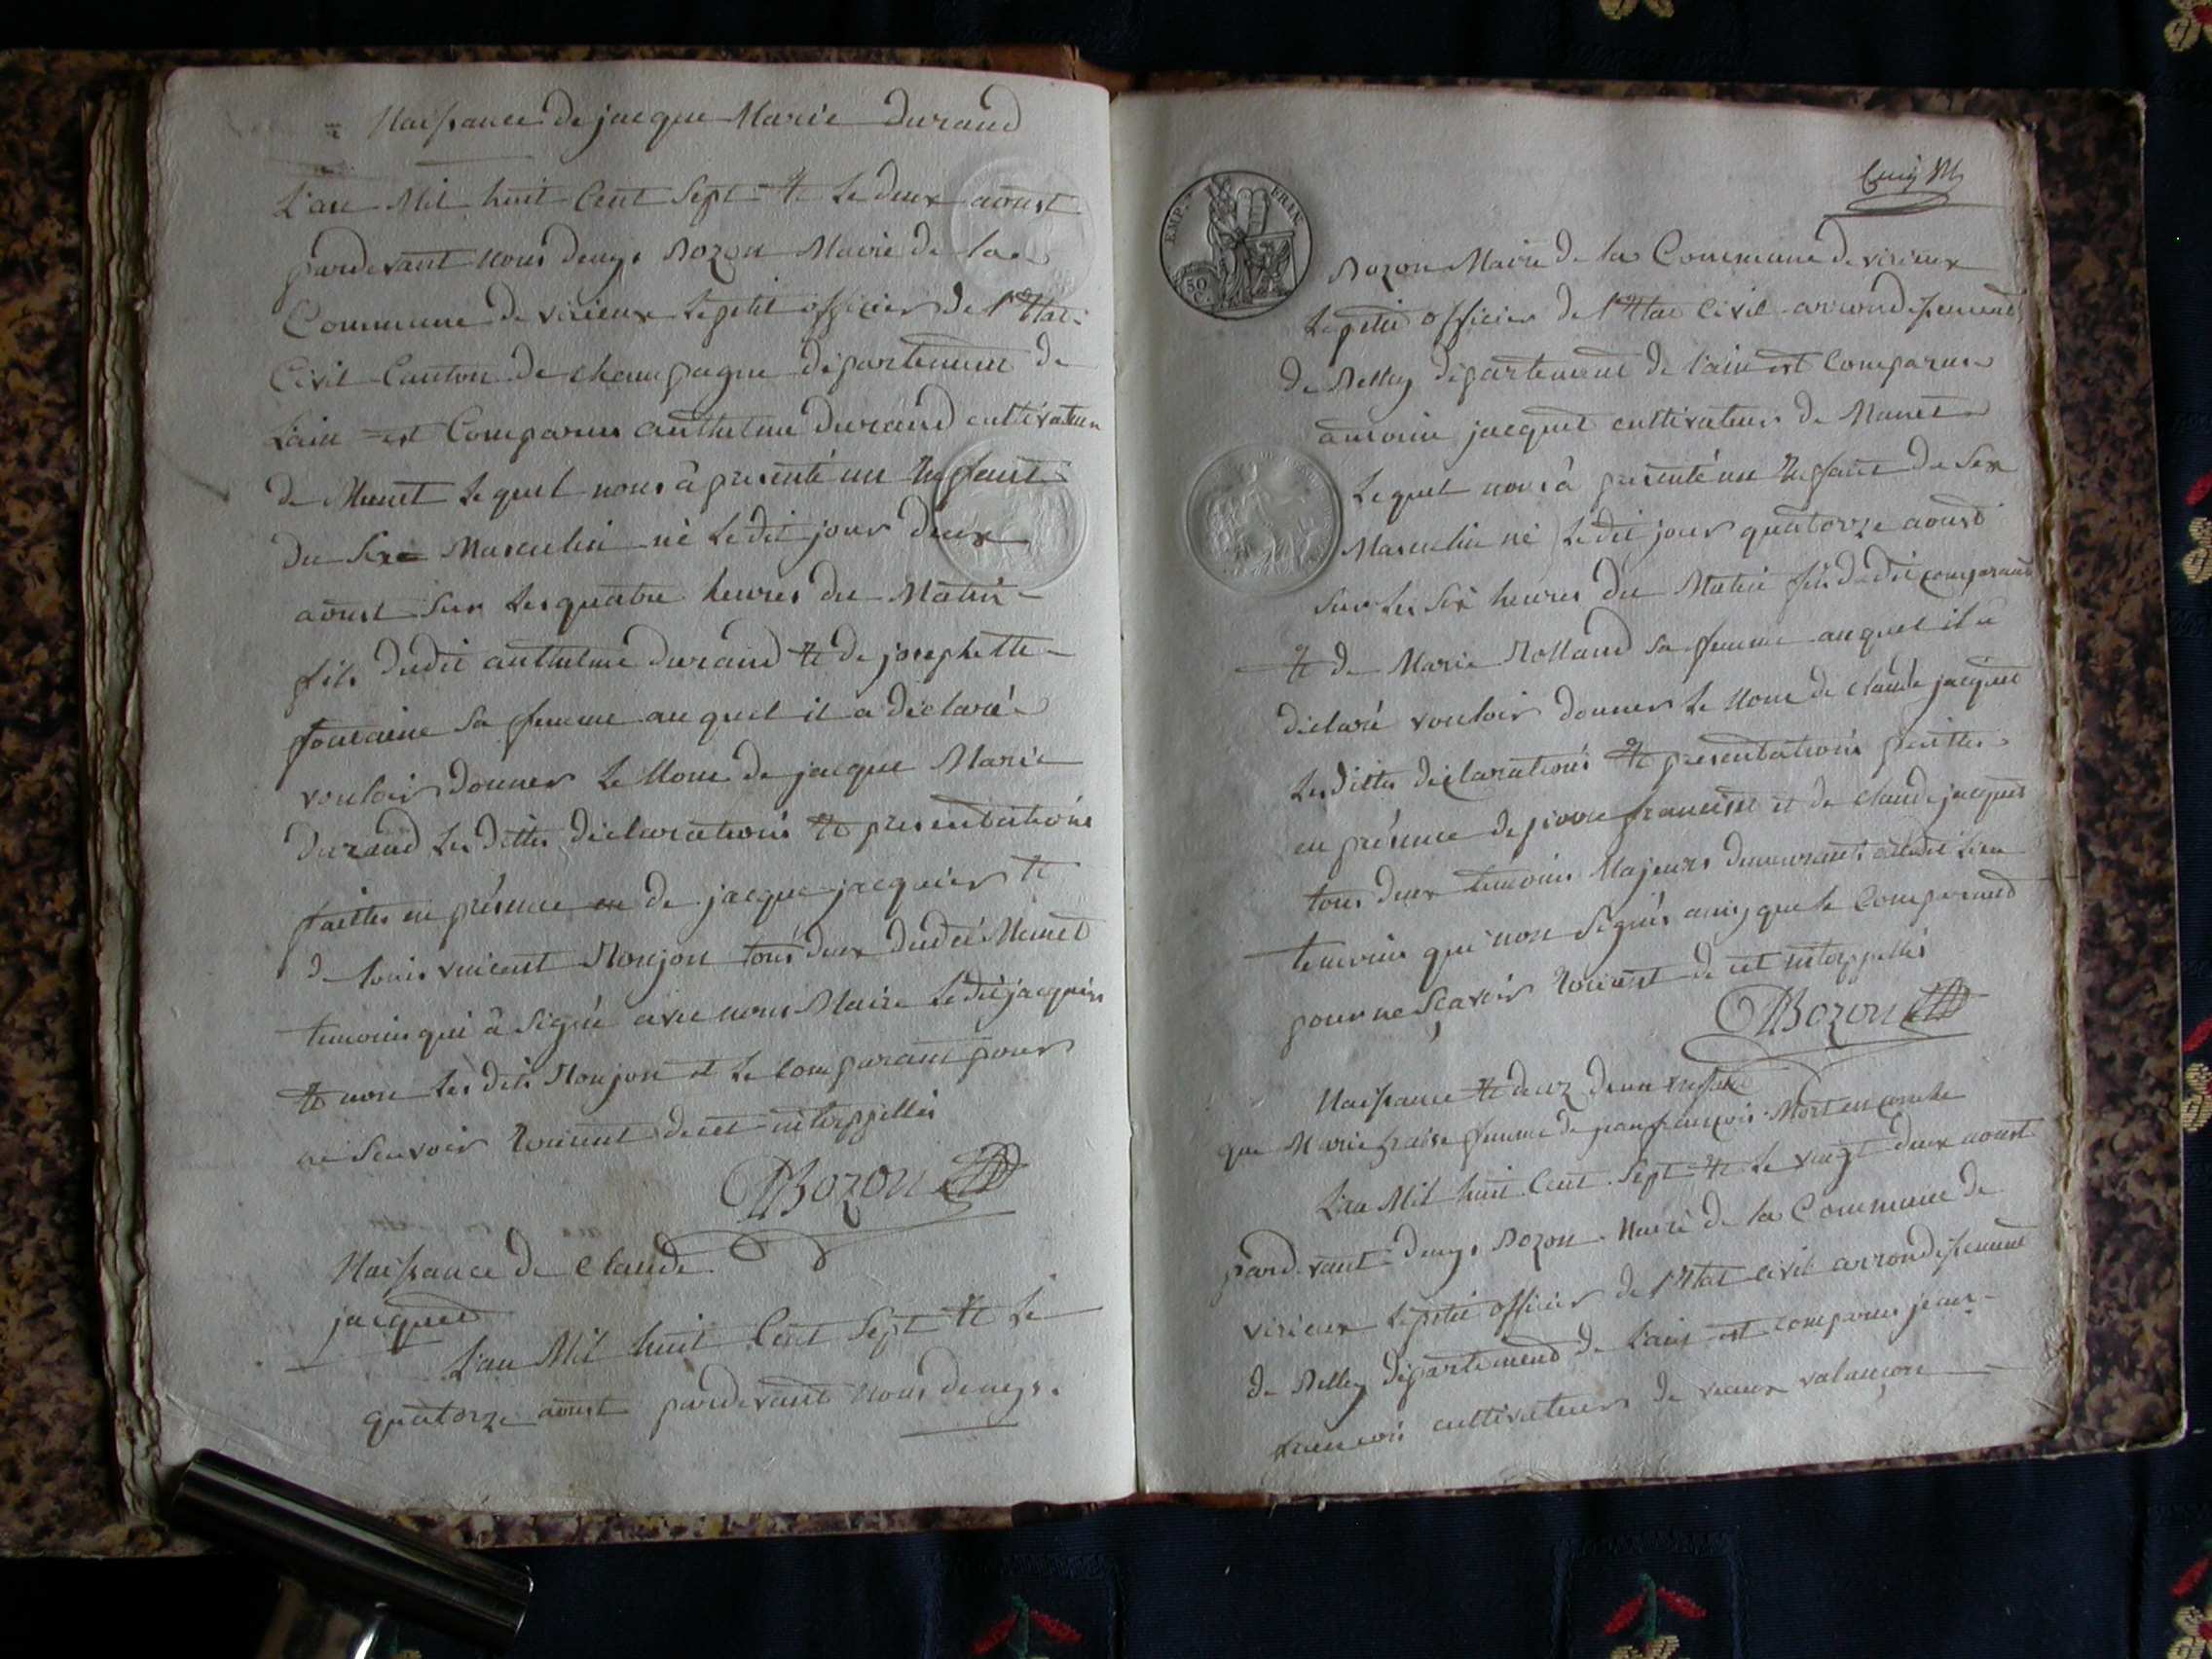 Naissance de jacque Marie Durand
L'an Mil huit Cent Sept & Le deux aoust
pardevant nous denys Bozon Maire de la
Commune de virieux Le petit officier de l'Etat
Civil Canton de champagne département de
L'ain est Comparus anthelme Durand cultivateur
de Munet Le quel nous à présenté un Enfant
du Sexe Masculin né Ledit jour deux
aoust Sur Les quatre heures du Matin
fils dudit anthelme durand & de josephette
fontaine sa femme au quel il a déclaré
vouloir donner Le Nom de jacque Marie
Durand Les dittes déclarations & presentations
faittes en présence de jacque jacquier &
de louis vincent Monjon tous deux dudit Munet
temoins qui à Signé avec nous Maire Le dit jacquier
& non Les dits Monjon et Le comparant pour
ne Scavoir Ecrirent de cet interppellés
DBozon
Naissance de Claude
jacquet
L'an Mil huit Cent Sept & Le
quatorze aoust pardevant nous denys
EMP. FRIX
50 C.
Bozon Maire de la Commune de virieux
Le petit officier de l'Etat Civil arrondissement
de Belley département de l'ain est Comparus
antoine jacquet cultivateur de Munet
Le quel nous à présenté un Enfant de Sex
Masculin né Le dit jour quatorze aoust
Sur Les Six heures du Matin fils dudit comparant
& de Marie Rolland Sa femme au quel il a
déclaré vouloir donner Le Nom de claude jacquet
Les dittes déclarations & presentations faittes
en présence de pierre francisse et de claude jacquet
tous deux temoins Majeurs demeurants audit Lieu
temoins qui non Signés ainsy que le Comparand
pour ne Sçavoir Ecrirent de cet interppellés
DBozon
Naissance & decez d'un enfant
que Marie femme de jean françois Mort en couche
L'an Mil huit Cent Sept & Le vingt deux aoust
pardevant denys Bozon Maire de la Commune de
virieux Le petit officier de l'Etat civil arrondissement
de Belley département de L'ain est comparus jean
françois cultivateur de vieux valançon